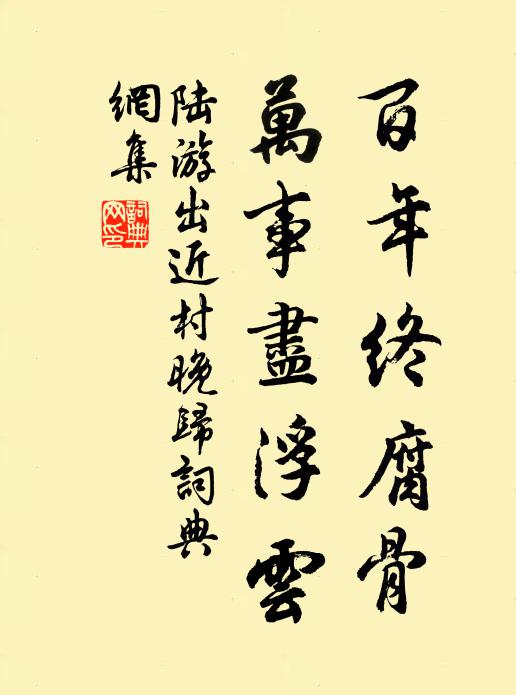 百年終腐骨
萬事盡浮雲
陸游出近村晚歸詞典
網集
詞典
网印